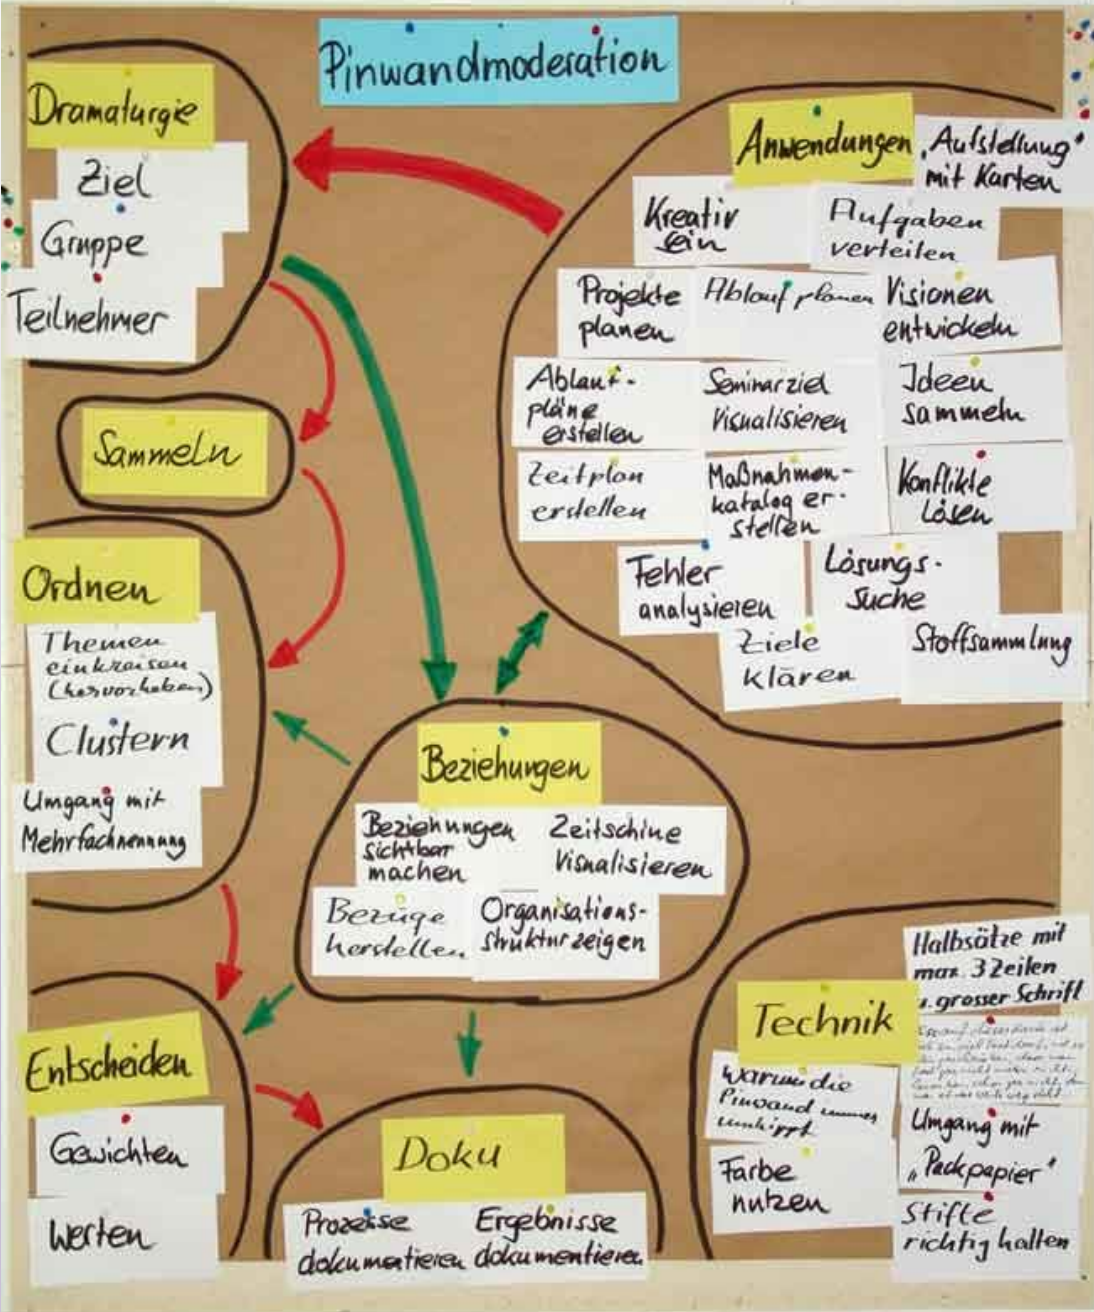 Pinwandmoderation
Dramaturgie
Ziel
Gruppe
Teilnehmer
Sammeln
Ordnen
Themen
einkreisen
(hervorheben)
Clustern
Umgang mit
Mehrfachnennung
Entscheiden
Gewichten
Werten
Anwendungen
"Aufstellung"
mit Karten
Kreativ
sein
Aufgaben
verteilen
Projekte
planen
Ablauf planen
Visionen
entwickeln
Ablauf-
pläne
erstellen
Seminarziel
Visualisieren
Ideen
sammeln
Zeitplan
erstellen
Maßnahmen-
katalog er-
stellen
Konflikte
Lösen
Fehler
analysieren
Lösungs-
suche
Ziele
klären
Stoffsammlung
Beziehungen
Beziehungen
sichtbar
machen
Zeitschine
Visualisieren
Bezüge
herstellen
Organisations-
struktur zeigen
Doku
Prozesse
dokumentieren
Ergebnisse
dokumentieren
Technik
Halbsätze mit
max. 3 Zeilen
u. grosser Schrift
Warum die
Pinwand immer
umkippt
Umgang mit
"Packpapier"
Farbe
nutzen
Stifte
richtig halten